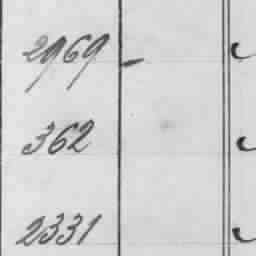 2969 -
362
2331